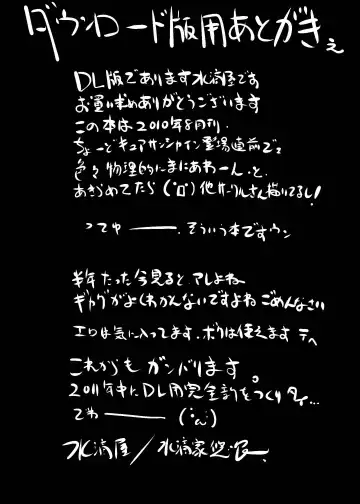 ダウンロード版用あとがきぇ
DL版であります水滴屋です
お買い求めありがとうございます
この本は2010年8月刊、
ちょーどキュアサンシャイン登場直前でで
色々物理的にまにあわーん。と、
あきらめてたら(°□°)他サークルさん描いてるし!
ってゆ―――.そういう本ですウン
半年たった今見ると、アレよね
ギャグがよくわかんないですよねごめんなさい
エロは気に入ってます、ボクは使えますテヘ
これからもガンバります。
2011年中にDL用完全計をつくりタイ...
でわ―――
水滴屋/水滴家